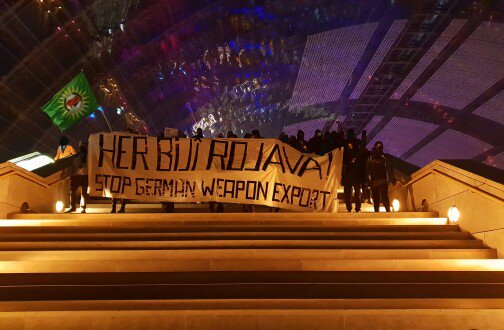 HER BIJÎ ROJAVA!
STOP GERMAN WEAPON EXPORT